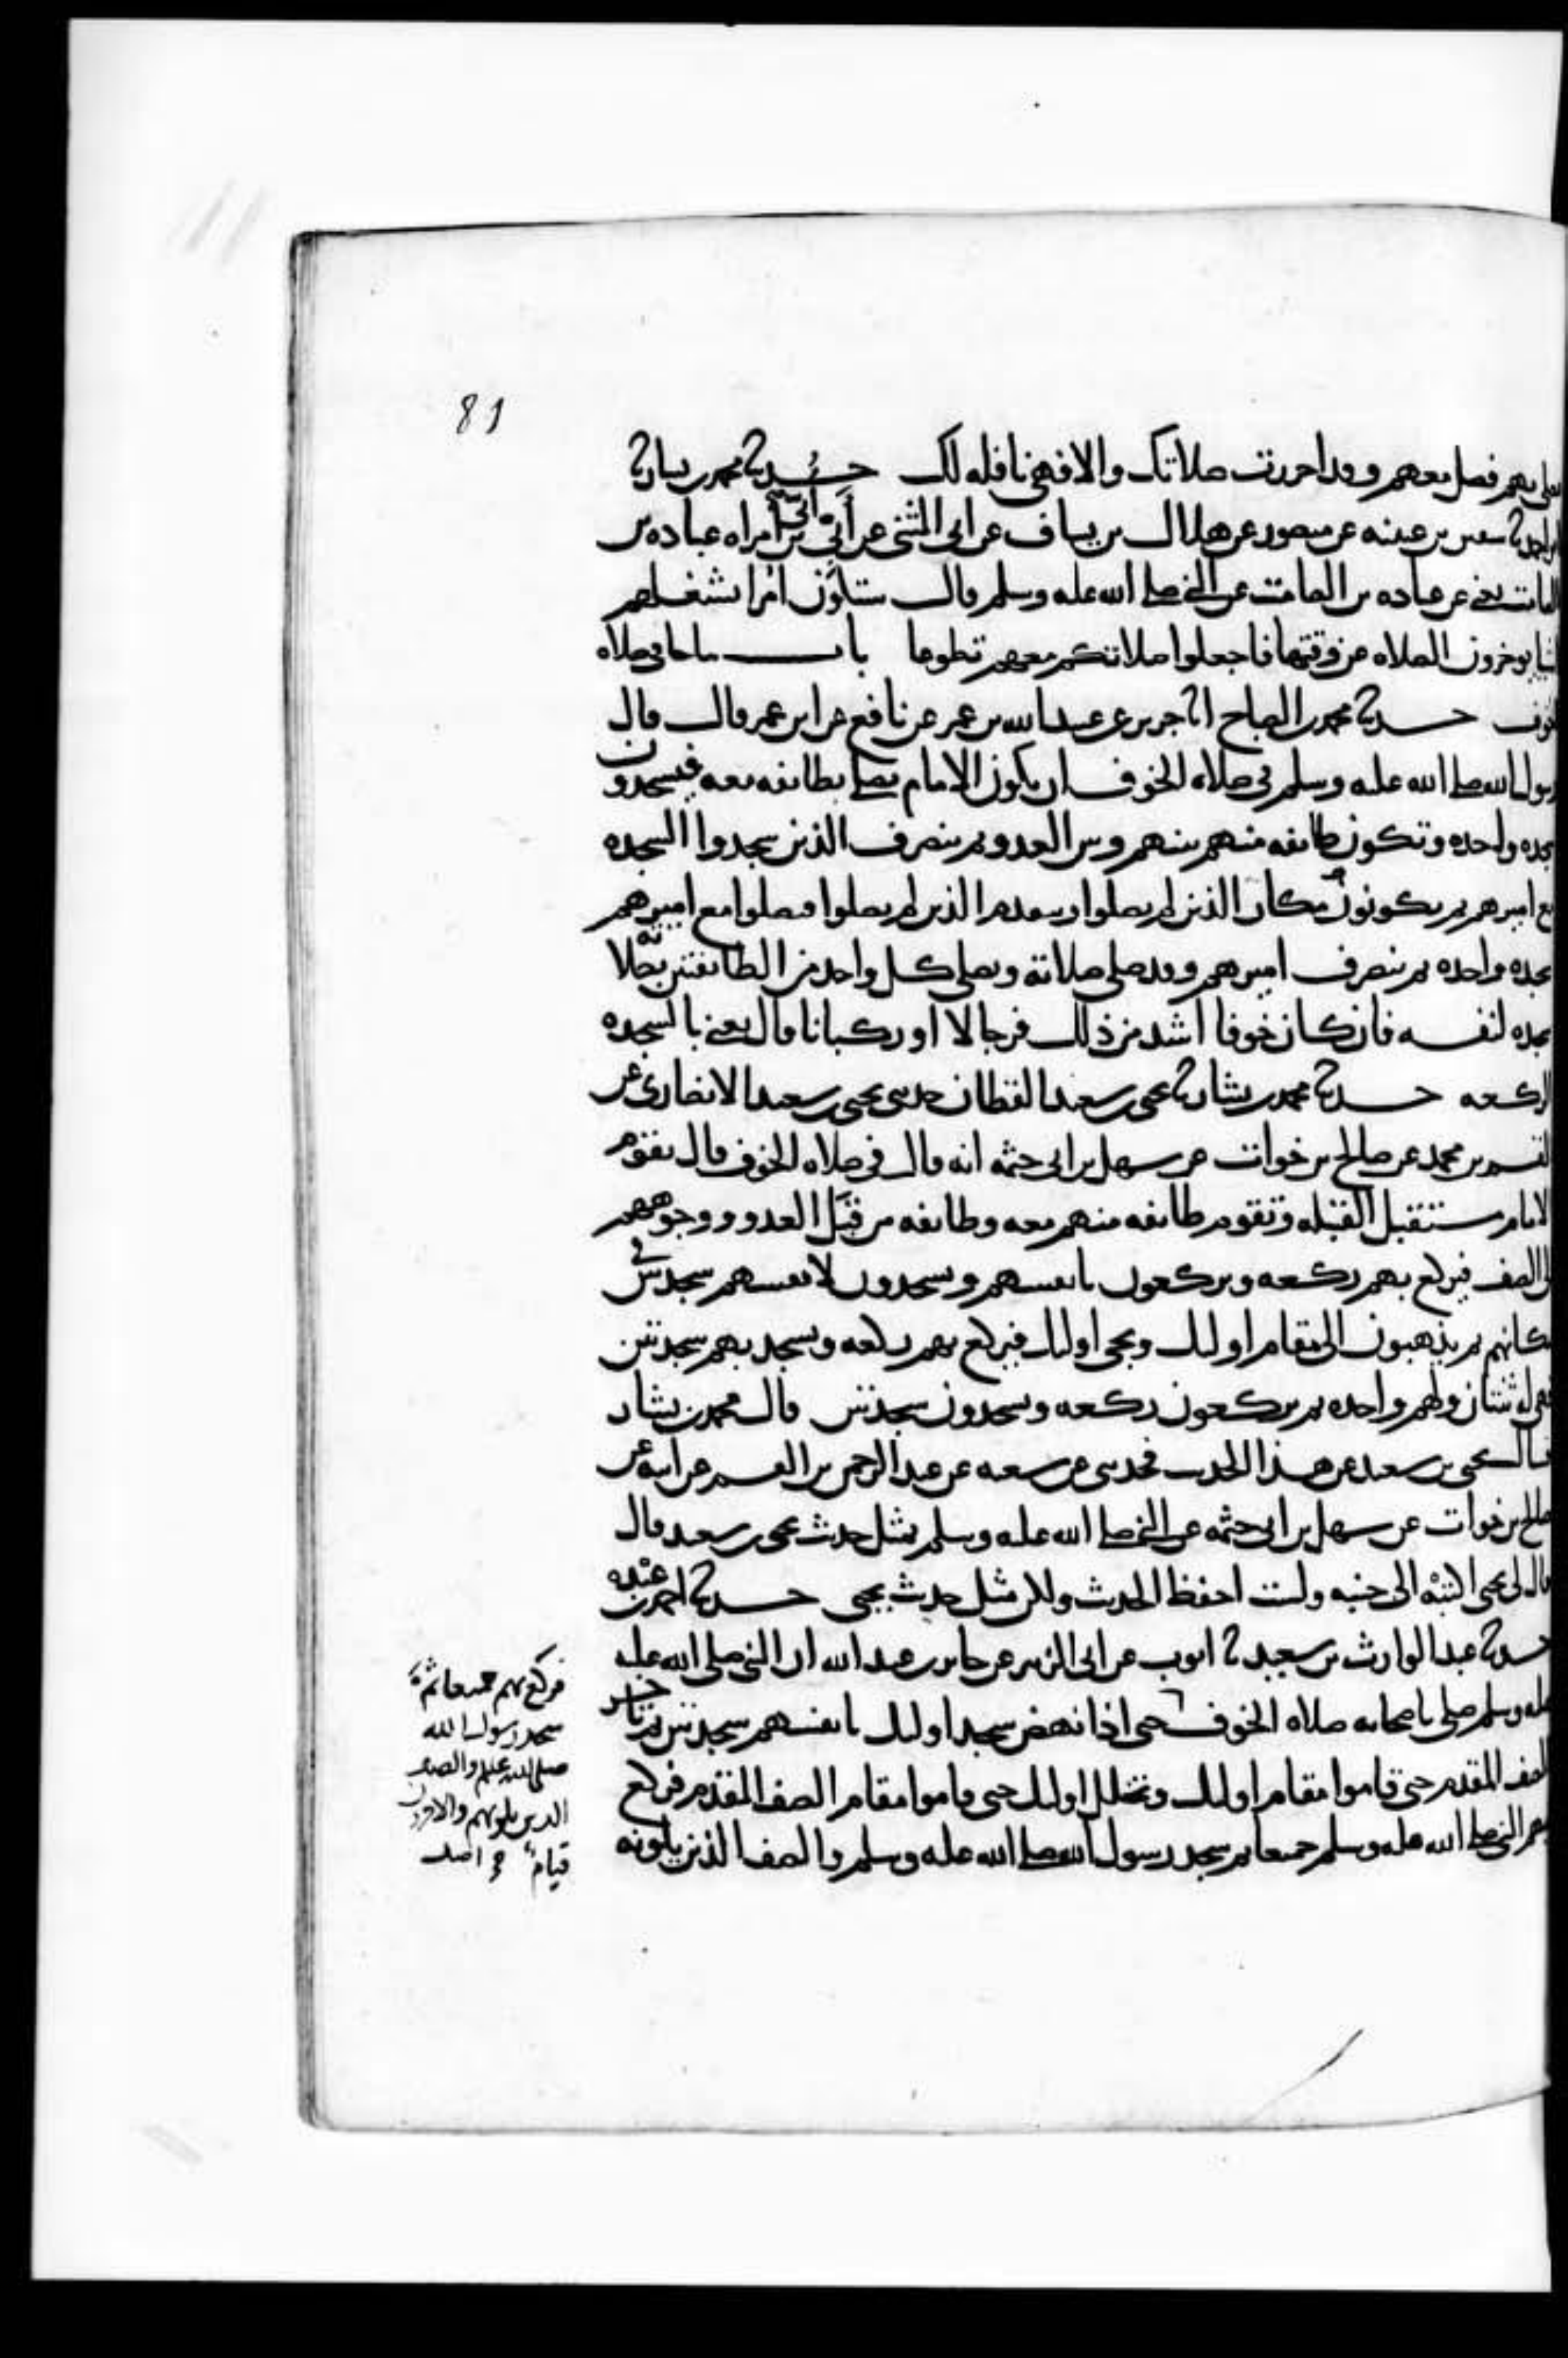 81
يصلي بهم فصل معهم وقد احرزت صلاتك والا فهي نافله لك حدثنا محمد بن بشار ثنا
ابو احمد ثنا سفين بن عيينه عن منصور عن هلال بن يساف عن ابي المثنى عن ابي ابي بن امراه عباده بن
الصامت يعني عن عباده بن الصامت عن النبي صلى الله عليه وسلم قال ستكون امرا تشغلهم
اشيا يوخرون الصلاه عن وقتها فاجعلوا صلاتكم معهم تطوعا باب ما جا في صلاه
الخوف حدثنا محمد بن الصباح انا جرير عن عبد الله بن عمر عن نافع عن ابن عمر قال قال
رسول الله صلى الله عليه وسلم في صلاه الخوف ان يكون الامام يصلي بطائفه معه فيسجدون
سجده واحده وتكون طائفه منهم بينهم وبين العدو ثم ينصرف الذين سجدوا السجده
مع اميرهم ثم يكونون مكان الذين لم يصلوا ويتقدم الذين لم يصلوا فيصلوا مع اميرهم
سجده واحده ثم ينصرف اميرهم وقد صلى صلاته ويصلي كل واحد من الطائفتين بصلاته
سجده لنفسه فان كان خوفا اشد من ذلك فرجالا او ركبانا قال يعني بالسجده
الركعه حدثنا محمد بن بشار ثنا يحيى بن سعيد القطان حدثني يحيى بن سعيد الانصاري عن
القسم بن محمد عن صالح بن خوات عن سهل بن ابي حثمه انه قال في صلاه الخوف قال يقوم
الامام مستقبل القبله وتقوم طائفه منهم معه وطائفه من قبل العدو ووجوههم
الى الصف فيركع بهم ركعه ويركعون بانفسهم ويسجدون لانفسهم سجدتين في
مكانهم ثم يذهبون الى مقام اوليك ويجي اوليك فيركع بهم ركعه ويسجد بهم سجدتين
فهي له ثنتان ولهم واحده ثم يركعون ركعه ويسجدون سجدتين قال محمد بن بشار
فسالت يحيى بن سعيد عن هذا الحديث فحدثني عن شعبه عن عبد الرحمن بن القسم عن ابيه عن
صالح بن خوات عن سهل بن ابي حثمه عن النبي صلى الله عليه وسلم بمثل حديث يحيى بن سعيد قال
قال لي يحيى اكتبه الى جنبه ولست احفظ الحديث ولكن مثل حديث يحيى حدثنا احمد بن عبده
حدثنا عبد الوارث بن سعيد ثنا ايوب عن ابي الزبير عن جابر بن عبد الله ان النبي صلى الله عليه
عليه وسلم صلى باصحابه صلاه الخوف حتى اذا نهض سجد اوليك بانفسهم سجدتين ثم تاخر
الصف المقدم حتى قاموا مقام اوليك وتخلل اوليك حتى قاموا مقام الصف المقدم فركع
بهم النبي صلى الله عليه وسلم جميعا ثم سجد رسول الله صلى الله عليه وسلم والصف الذين يلونه
فركع بهم جميعا ثم
سجد رسول الله
صلى الله عليه والصف
الذين يلونهم والاخرون
قيام